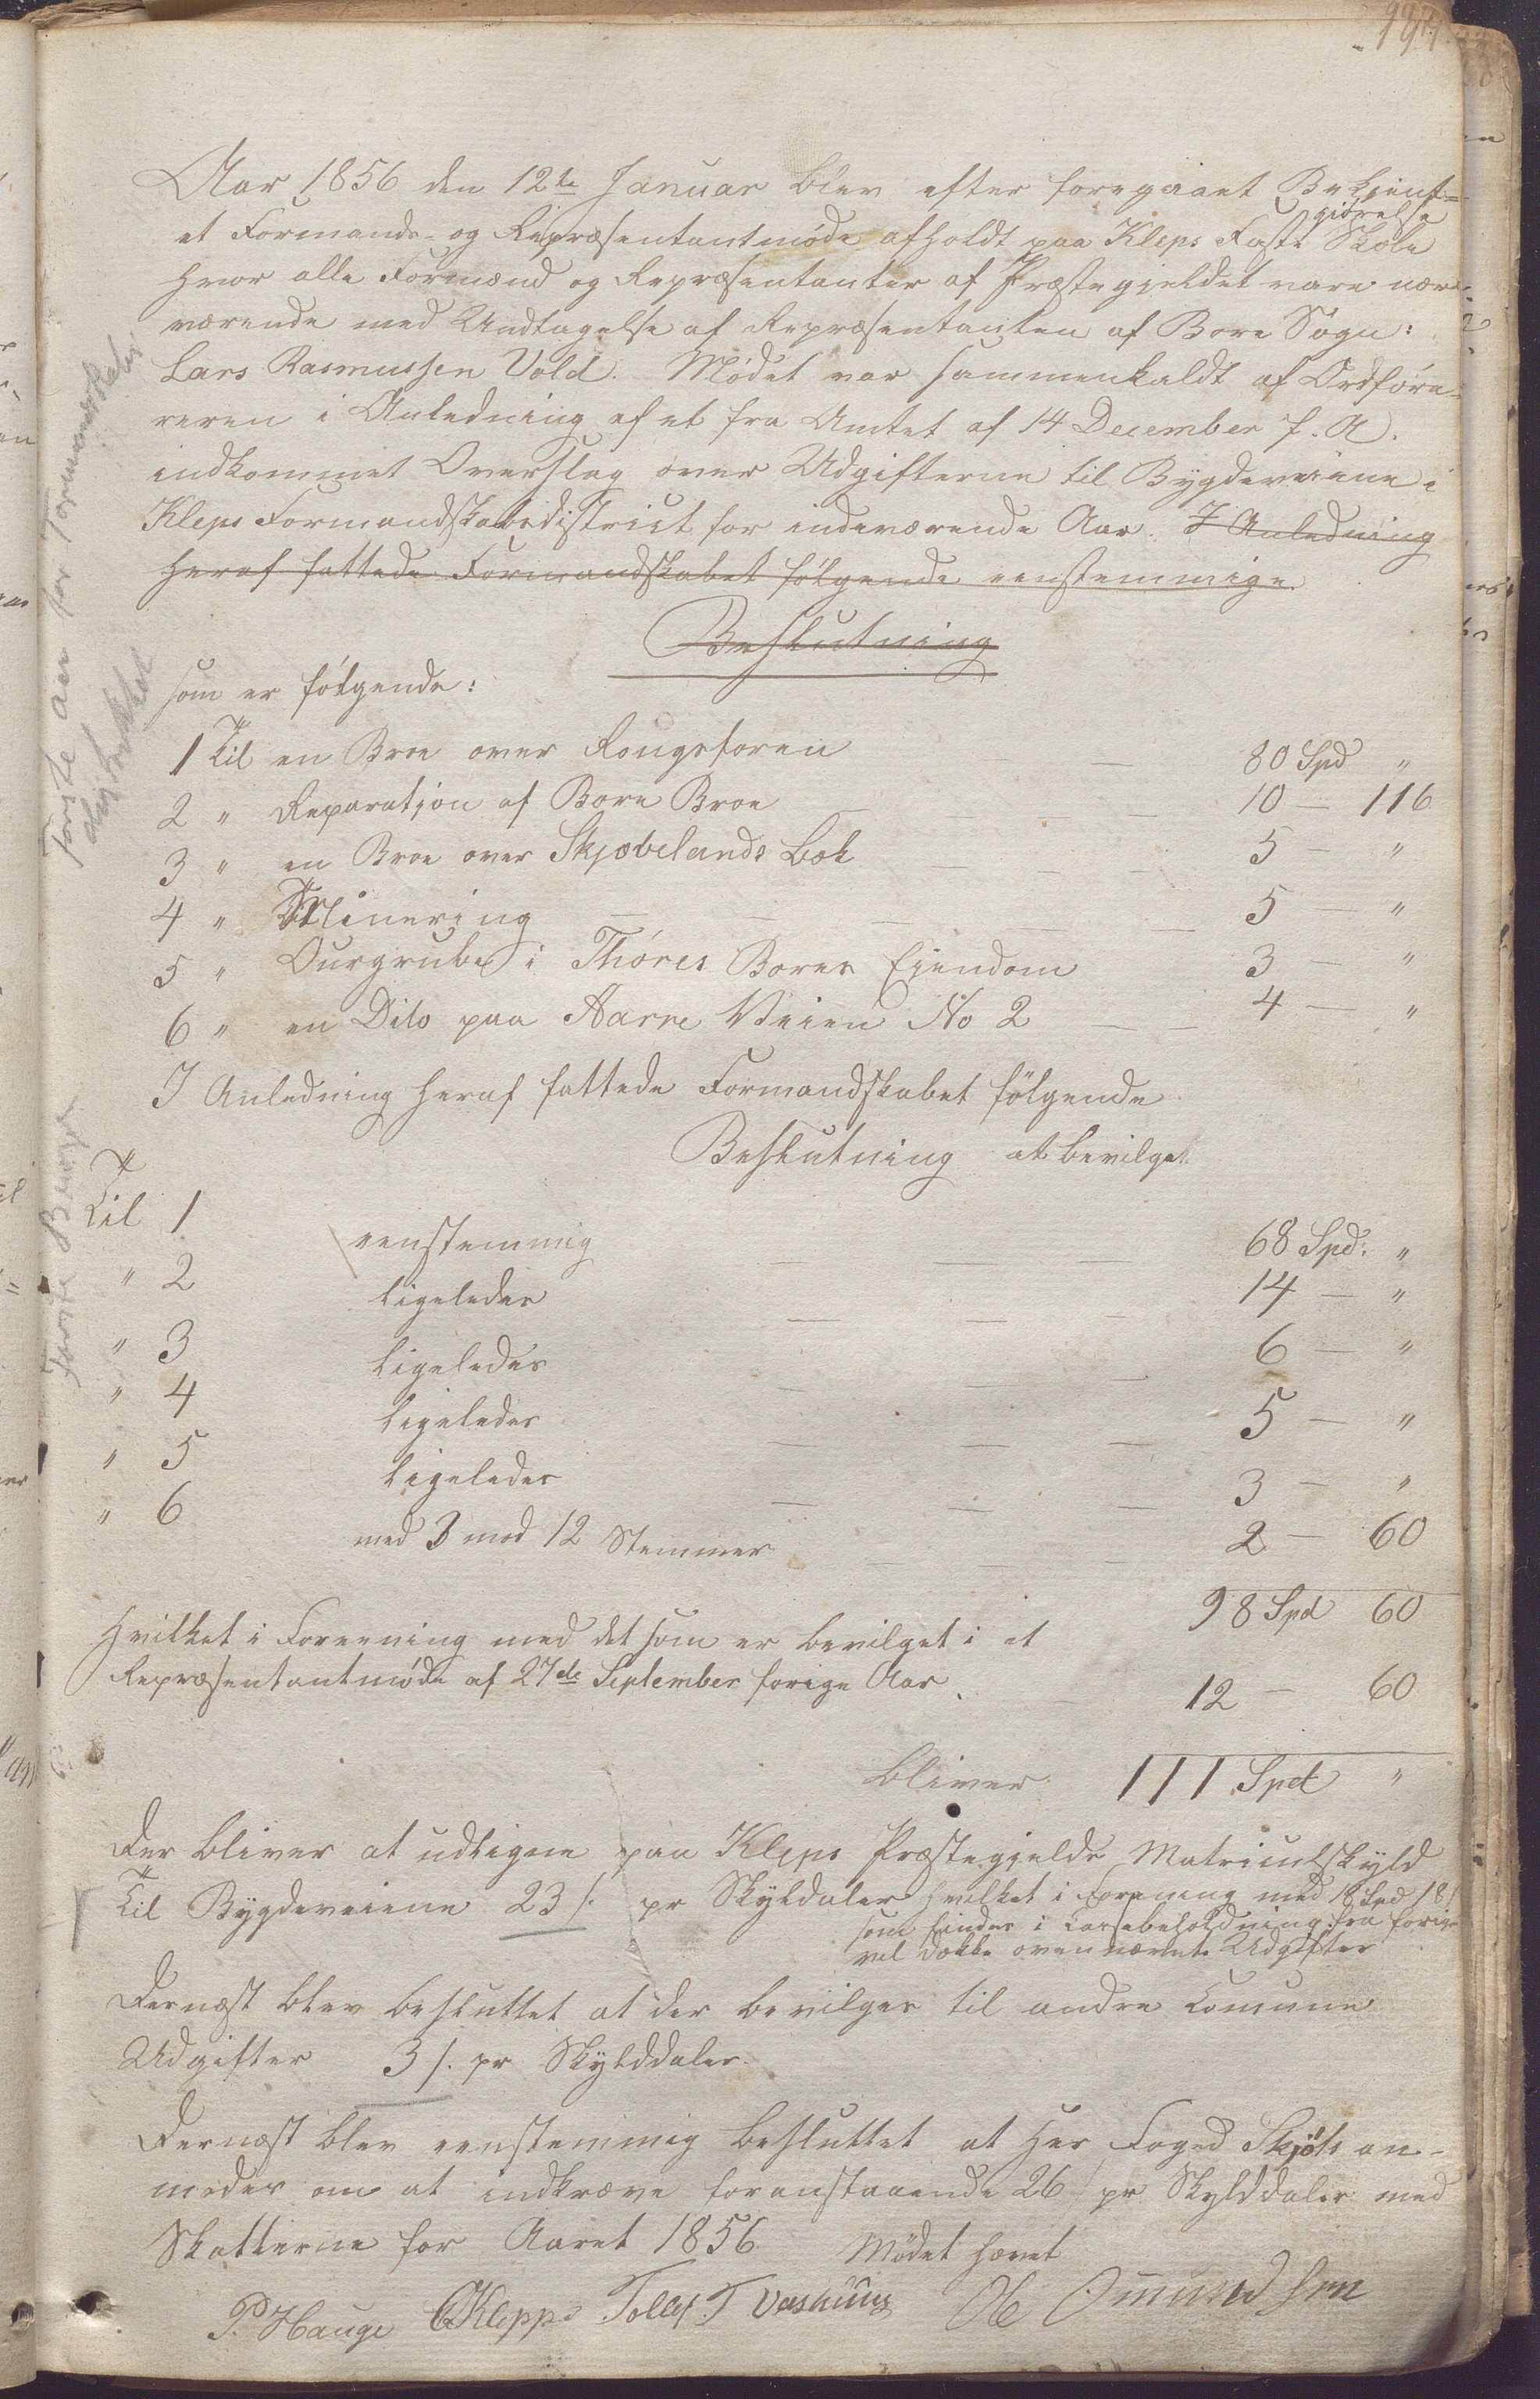 Aar 1856 den 12te Januar blev efter foregaaet Bekjent=
giørelse
et Formands- og Repræsentantmøde afholdt paa Kleps Faste Skole
hvor alle Formænd og Repræsentanter af Præstegjeldet vare nær-
værende med Undtagelse af Repræsentanten af Bore Sogn:
Lars Rasmussen Vold. Mødet var sammenkaldt af Ordføre-
reren i Anledning af et fra Amtet af 14 December f. A.
indkommet Overslag over Udgifterne til Bygdeveiene i
Kleps Formandskabsdistrict for indeværende Aar. I Anledning
heraf fattede Formandskabet følgende eenstemmige
Beslutning
som er følgende:
1 Til en Broe over Rongsforen 80 Spd "
2 " Reparation af Bore Broe 10 — 116
3 " en Broe over Skjæbelands Bæk 5 — "
4 " Minering 5 — "
5 " Ourgrube i Thóres Bores Eiendom 3 — "
6 " en Dito paa Aarre Veien No 2 4 — "
I Anledning heraf fattede Formandskabet følgende
Beslutning at bevilget
Til 1 eenstemmig 68 Spd: "
" 2 ligeledes 14 — "
" 3 ligeledes 6 — "
" 4 ligeledes 5 — "
" 5 ligeledes 3 — "
" 6 med 3 mod 12 Stemmer 2 — 60
98 Spd 60
Hvilket i Foreening med det som er bevilget i et
Repræsentantmøde af 27de September forige Aar 12 — 60
bliver 111 Spd "
Der bliver at udligne paa Kleps Præstegjelds Matriculskyld
Til Bygdeveiene 23 /. pr Skylddaler hvilket i Forening med 18 Spd 18/
som findes i Cassebeholdning fra forige
vel dække ovennævnte Udgifter
Dernæst blev besluttet at der bevilges til andre Comune
Udgifter 3 /. pr Skylddaler.
Dernæst blev eenstemmig besluttet at Her Foged Skjöts an-
modes om at indkræve foranstaaende 26 / pr Skylddaler med
Skatterne for Aaret 1856. Mödet hævet
P. Hauge OKleppe Tollef T Vashuus Ole Omundsen
første aar for formandskabs
distriktet